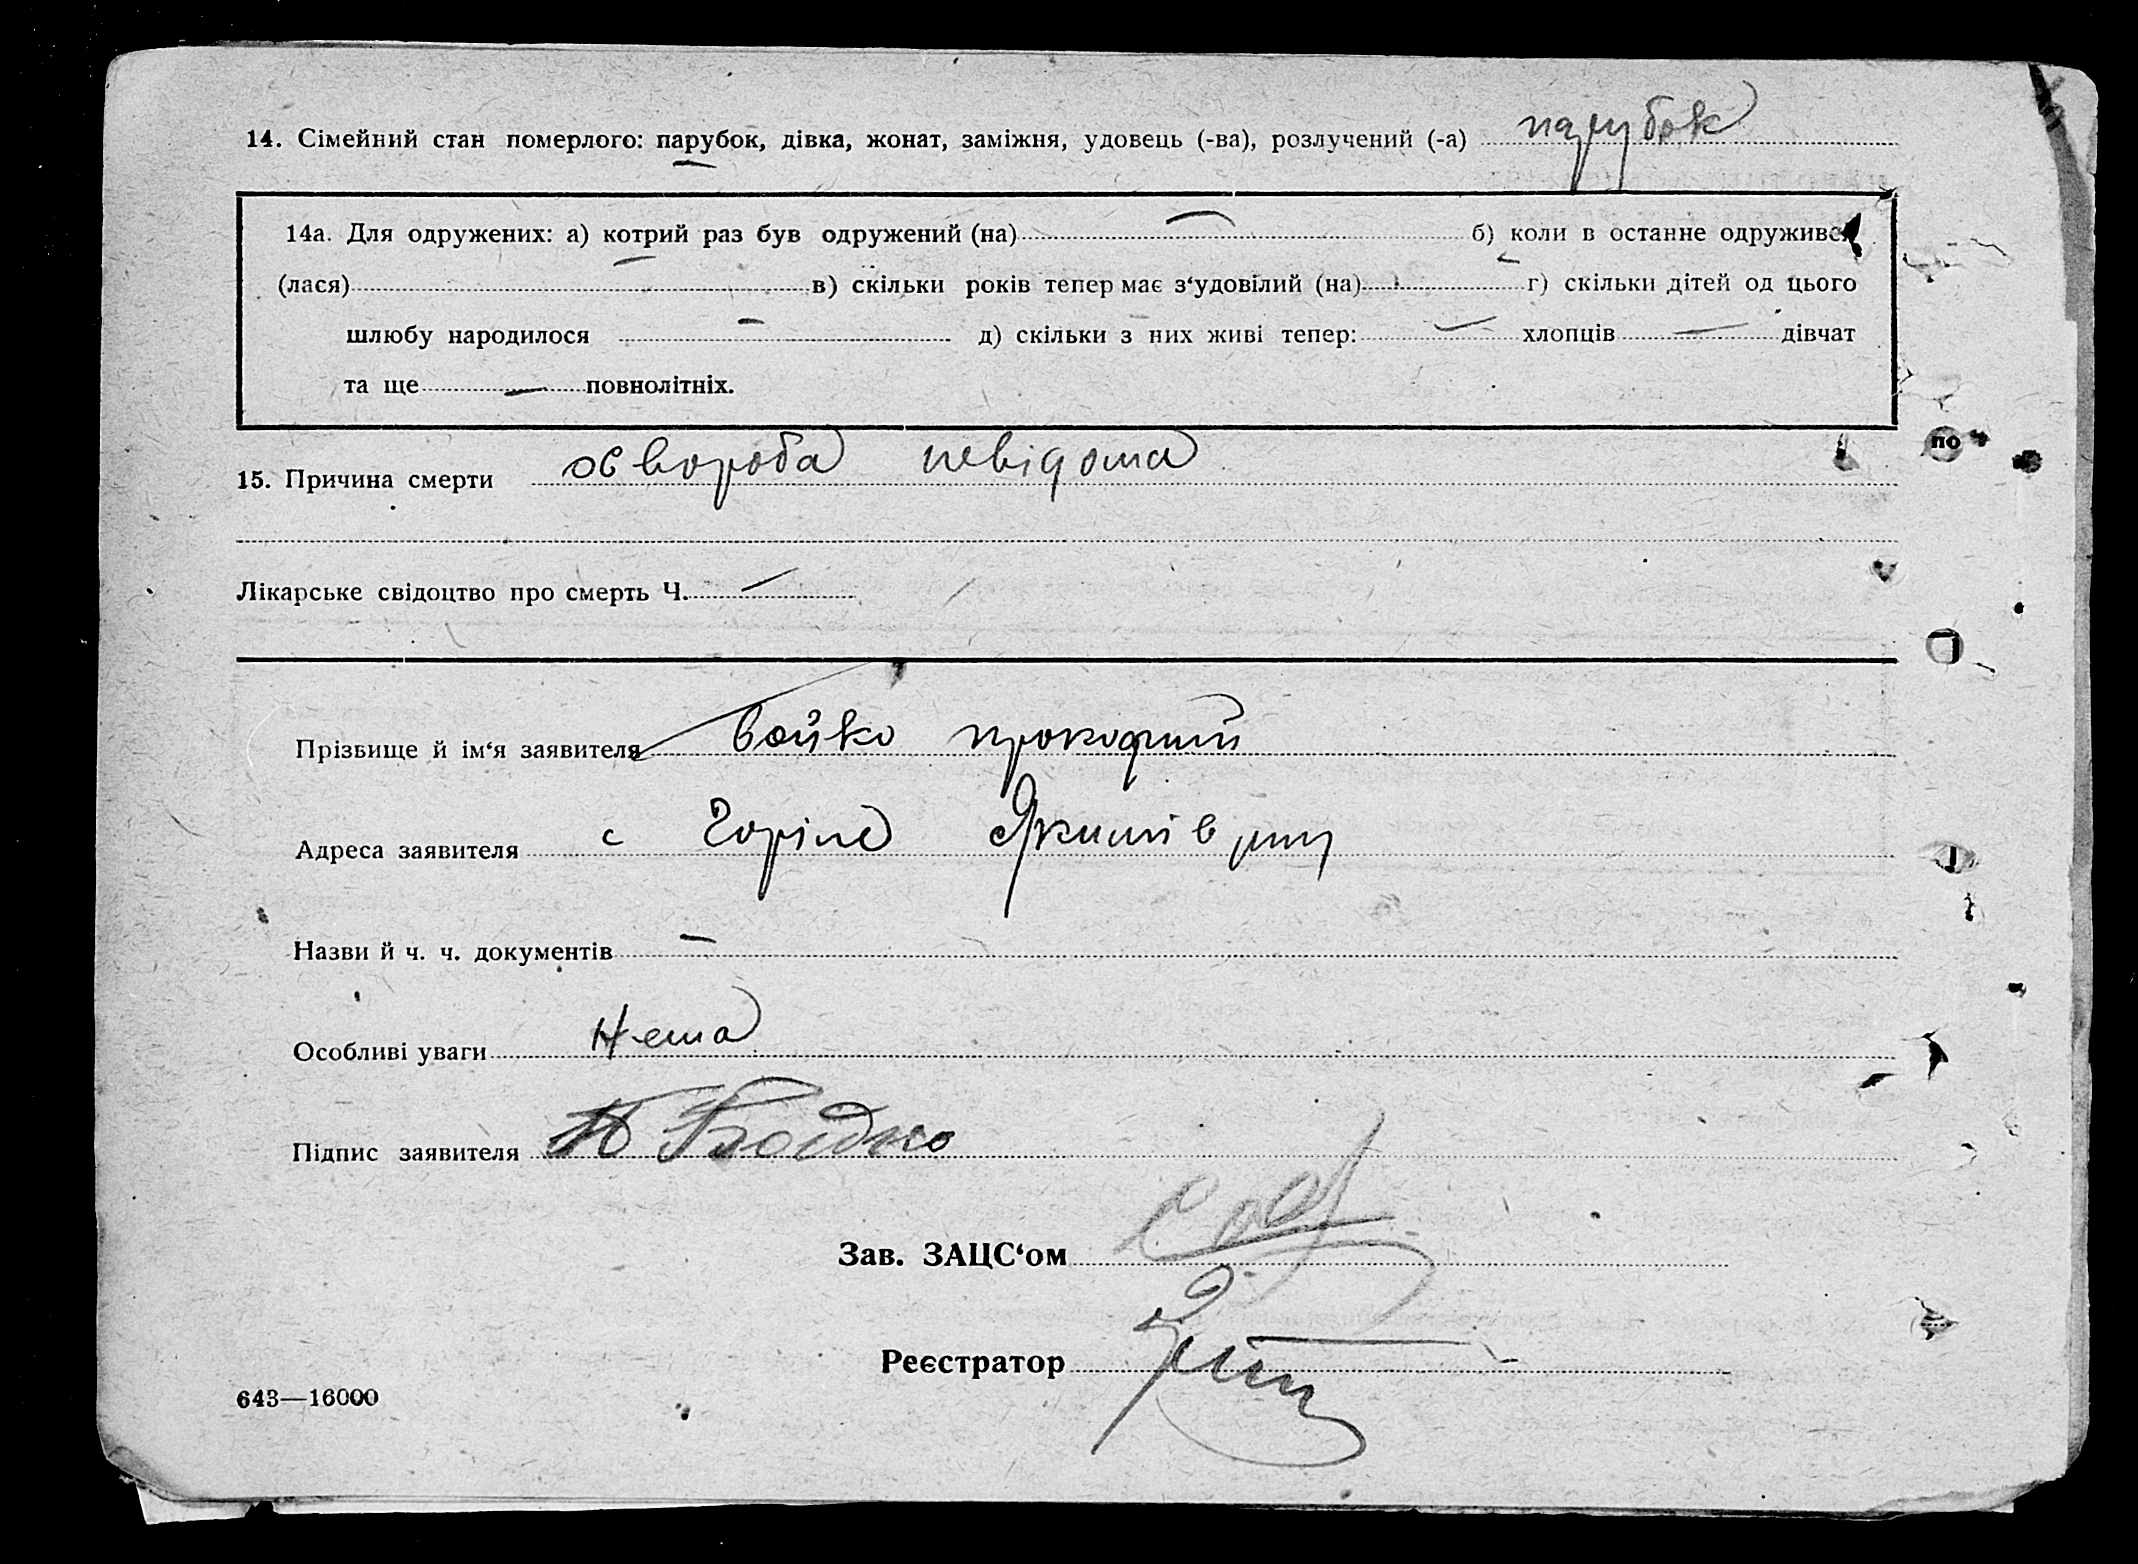 14. Сімейний стан померлого: парубок, дівка, жонат, заміжня, удовець (-ва), розлучений (-а) парубок
14а. Для одружених: а) котрий раз був одружений (на) — б) коли в останнє одруживс
(лася) — в) скільки років тепер має з‘удовілий (на) г) скільки дітей од цього
шлюбу народилося — д) скільки з них живі тепер: — хлопців — дівчат
та ще — повнолітніх.
15. Причина смерти хвороба невідома
по
Лікарське свідоцтво про смерть Ч. —
Прізвище й ім‘я заявителя Бойко прокофий
Адреса заявителя с Горіле
Назви й ч. ч. документів —
Особливі уваги Нема
Підпис заявителя П Бойко
Зав. ЗАЦС‘ом
Реєстратор
643—16000